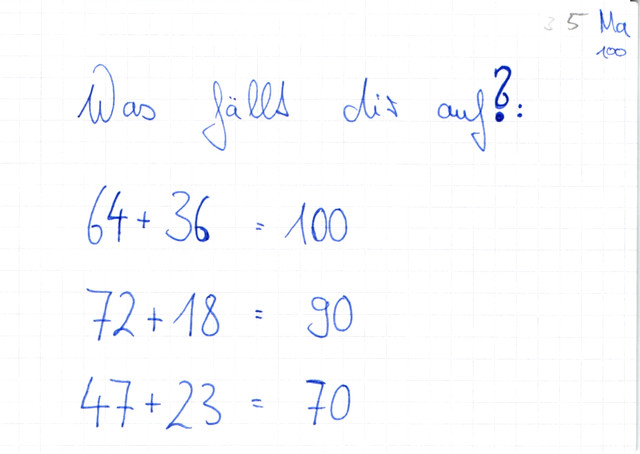 35 Ma
100
Was fällt dir auf?:
64 + 36 = 100
72 + 18 = 90
47 + 23 = 70